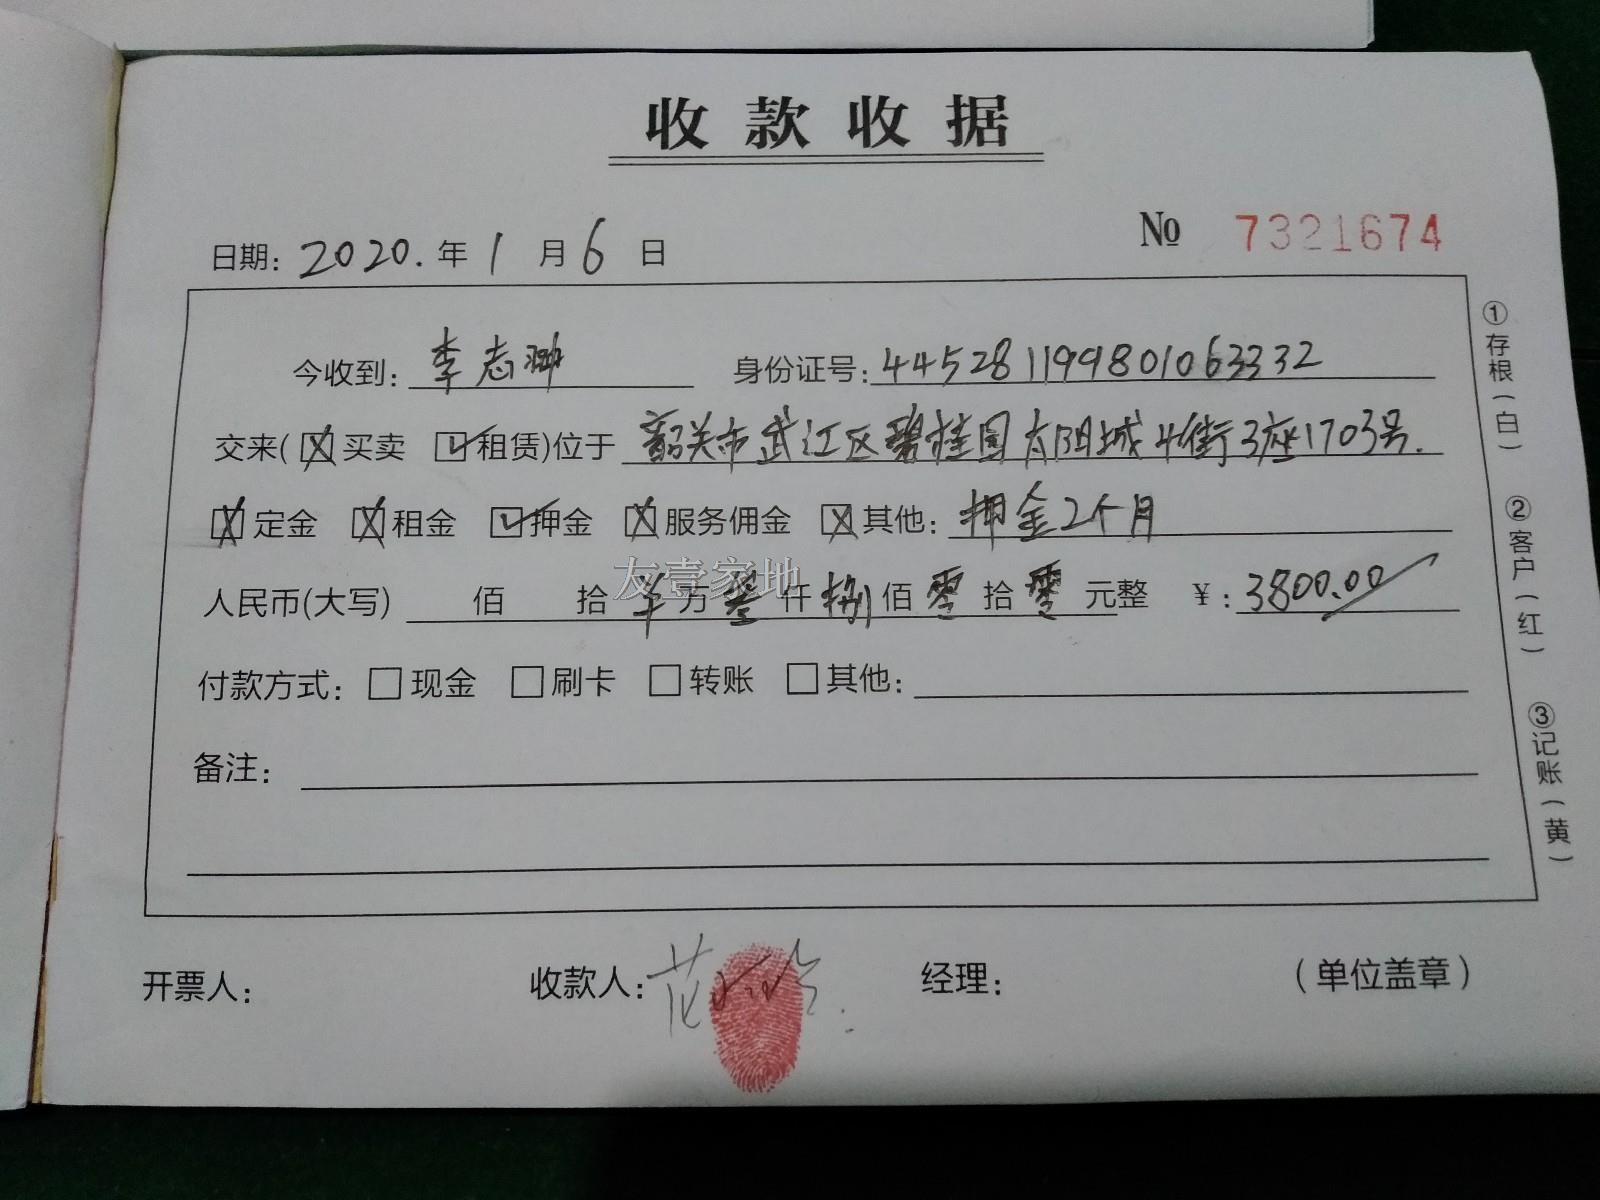 收款收据
日期: 2020. 年 1 月 6 日 № 7321674
今收到: 李志 身份证号: 445281199801063332
交来( ☒买卖 ☑租赁)位于 韶关市武江区碧桂园太阳城 街3座1703号.
☒定金 ☒租金 ☑押金 ☒服务佣金 ☒其他: 押金2个月
人民币(大写) 佰 拾 万 叁 仟 捌 佰 零 拾 零 元整 ¥: 3800.00
友壹家地
付款方式: □现金 □刷卡 □转账 □其他:
备注:
开票人: 收款人: 范 经理: (单位盖章)
①存根(白) ②客户(红) ③记账(黄)